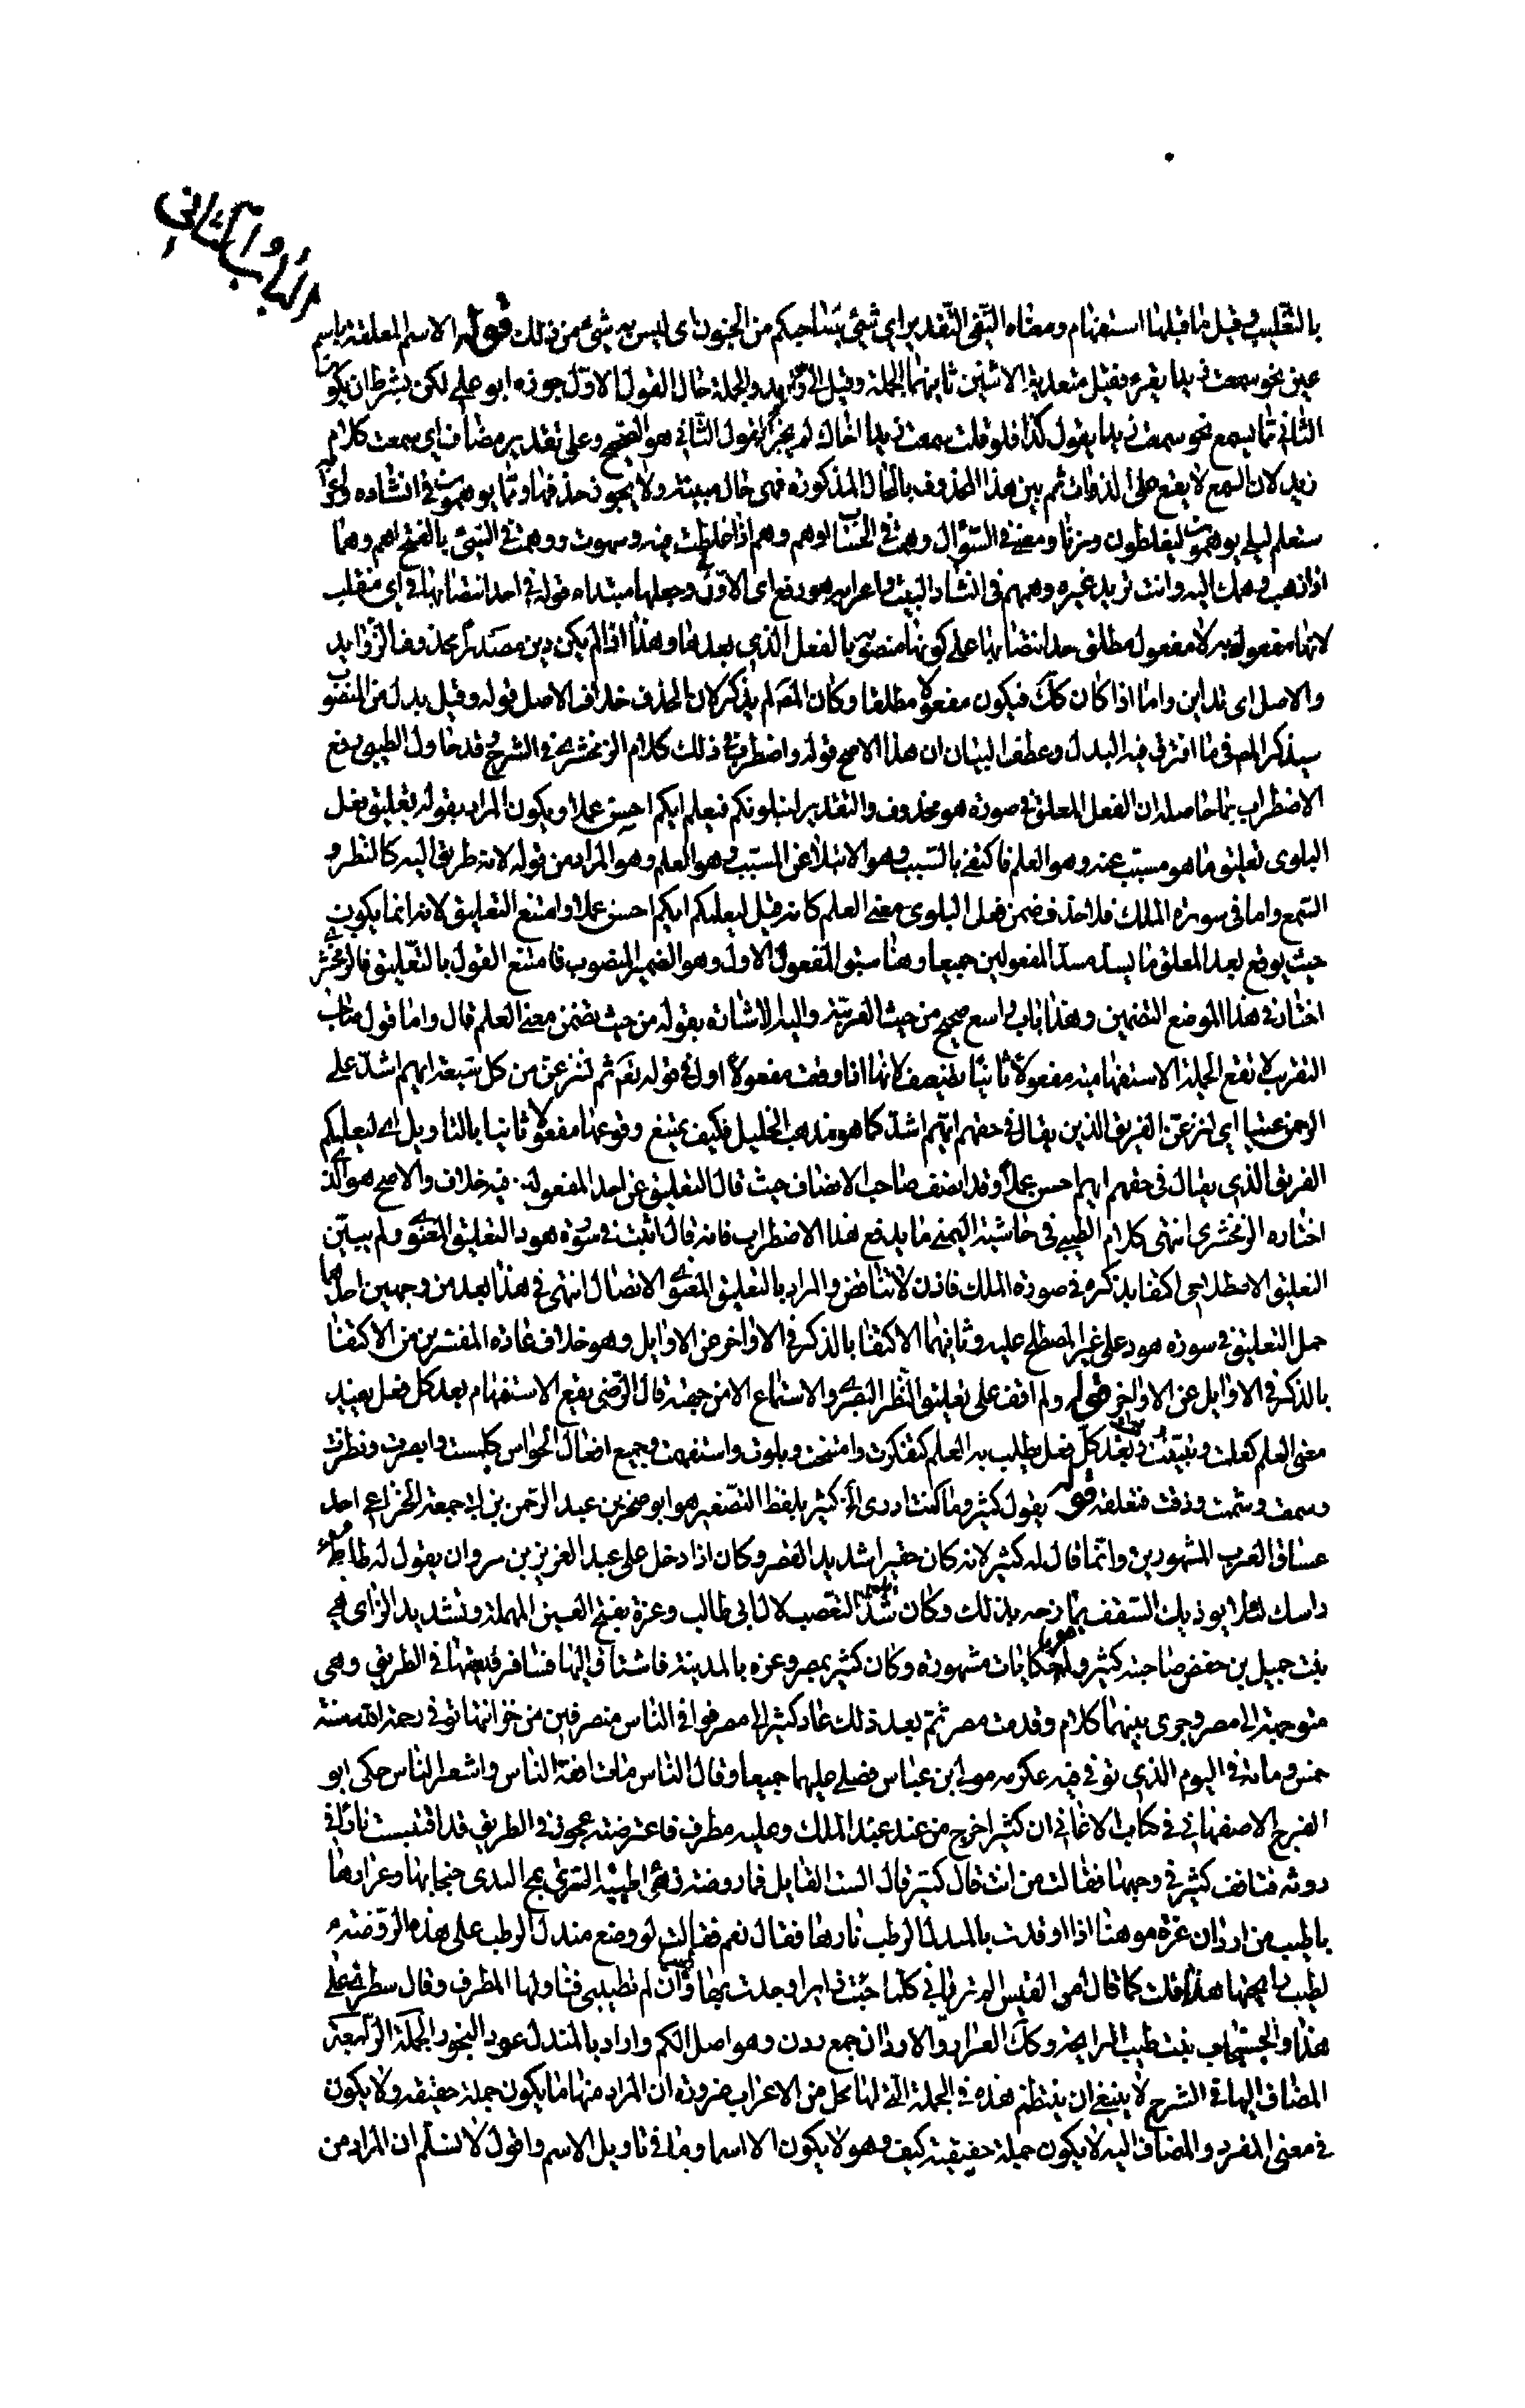 الباب الثاني
بالتقليب وقيل ما قبلها استفهام ومعناه النفي التقدير اي شئ بصاحبكم من الجنون اى ليس به شئ من ذلك قوله الاسم المعلقة باسم
عين نحو سمعت زيدا يقرء فقيل متعدية الاثنين ثانيهما الجملة وقيل الى واحد والجملة حال القول الاول جوزه ابو على لكن بشرط ان يكون
الثاني مما يسمع نحو سمعت زيدا يقول كذا فلو قلت سمعت زيدا اخاك لم يجز القول الثاني هو الصحيح وعلى تقدير مضاف اي سمعت كلام
زيد لان السمع لا يقع على الذوات ثم بين هذا المحذوف بالحال المذكورة فهى حال مبينة ولا يجوز حذفها ومما يوهمون في انشاده واعرا
ستعلم ليلى يوهمون ليغلطون وزنا ومعنى في السؤال وهمت في الحساب اوهم وهم اذا غلطت فيه وسهوت ووهمت في الشئ بالفتح اهم وهما
اذا ذهب وهمك اليه وانت تريد غيره وهمهم في انشاد البيت واعرابه هو رفع اى الاولى وجعلها مبتداء قوله في احد انتصابها في اى منقلب
لانها مفعول به لا مفعول مطلق انتصابها على كونها منصوب بالفعل الذي بعدها وهذا اذا لم يكن دين مصدرا محذوف الزوايد
والاصل اى تداين واما اذا كان كك فيكون مفعولا مطلقا وكان المص لم يذكره لان الحذف خلاف الاصل قوله وقيل بدل من المنصوب
سيذكر المص في ما افترق فيه البدل وعطف البيان ان هذا الاصح قوله واضطرب في ذلك كلام الزمخشري في الشرح وقد حاول الطيبي دفع
الاضطراب بما حاصله ان الفعل المعلق في صورة هو محذوف والتقدير ليبلوكم فيعلم ايكم احسن عملا ويكون المراد بقوله تعليق فعل
البلوى تعليق ما هو مسبب عنه وهو العلم فاكتفى بالسبب وهو الابتلا عن المسبب وهو العلم وهو المراد من قوله لانه طريق اليه كالنظر و
السمع واما في سورة الملك فلا حذف ضمن فعل البلوى معنى العلم كانه قيل ليعلمكم ايكم احسن عملا وامتنع التعليق لانه انما يكون
حيث يوقع بعد المعلق ما يسد مسد المفعولين جميعا وهنا سبق المفعول الاول وهو الضمير المنصوب فامتنع القول بالتعليق فالزمخشري
اختار في هذا الموضع التضمين وهذا باب واسع صحيح من حيث العربية واليه الاشارة بقوله من حيث تضمن معنى العلم قال واما قول صاحب
التقريب لا تقع الجملة الاستفهامية مفعولا ثانيا فضعيف لانها اذا وقعت مفعولا اولا في قوله تعم ثم لننزعن من كل شيعة ايهم اشد على
الرحمن عتيا اي لننزعن الفريق الذين يقال في حقهم ايهم اشد كما هو مذهب الخليل فكيف يمتنع وقوعها مفعولا ثانيا بالتاويل اى ليعلمكم
الفريق الذي يقال في حقهم ايهم احسن عملا وقد انصف صاحب الانصاف حيث قال التعليق عن احد المفعولين فيه خلاف والاصح هو الذي
اختاره الزمخشرى انتهى كلام الطيبي في حاشية اليمني ما يدفع هذا الاضطراب فانه قال اثبت في سورة هود التعليق المعنوي ولم يبين
التعليق الاصطلاحي اكتفا بذكره في صورة الملك فاذن لا تناقض والمراد بالتعليق المعنوي الاتصال انتهى في هذا بعد من وجهين احدهما
حمل التعليق في سورة هود على غير المصطلح عليه وثانيهما الاكتفا بالذكر في الاواخر عن الاوايل وهو خلاف عادة المفسرين من الاكتفا
بالذكر في الاوايل عن الاواخر قوله ولم اقف على تعليق النظر البصري والاستماع الا من جهته قال الرضى يقع الاستفهام بعد كل فعل يفيد
معنى العلم كعلت وتبينت وبعد كل فعل يطلب به العلم كتفكرت وامتحنت وبلوت واستفهمت وجميع افعال الحواس كلمست وابصرت ونظرت
وسمعت وشمت وذقت متعلقة قوله يقول كثير وما كنت ادرى الخ كثير بلفظ التصغير هو ابو صخر بن عبد الرحمن بن ابى جمعة الخزاعى احد
عشاق العرب المشهورين وانما قال له كثير لانه كان حقيرا شديد القصر وكان اذا دخل على عبد العزيز بن مروان يقول له طاطا
راسك لئلا يوذيك السقف يمازحه بذلك وكان شديد التعصب لال ابى طالب وعزة بفتح العين المهملة وتشديد الزاى هى
بنت جميل بن حفص صاحبة كثير ولها حكايات مشهورة وكان كثير بمصر وعزه بالمدينة فاشتاق اليها فسافر فلقيها في الطريق وهى
متوجهة الى مصر وجرى بينهما كلام وقدمت مصر ثم بعد ذلك عاد كثير الى مصر فوافى الناس منصرفين من جنازتها توفى رحمه الله سنة
خمس ومائة في اليوم الذي توفى فيه عكرمه مولى ابن عباس فصلى عليهما جميعا وقال الناس مات افقه الناس واشعر الناس حكى ابو
الفرج الاصفهاني في كتاب الاغاني ان كثيرا خرج من عند عبد الملك وعليه مطرف فاعترضته عجوز في الطريق قد اقتبست نارا في
روثه فتافف كثير في وجهها فقالت من انت قال كثير قال الست القايل فما روضة زهى طيبة الثرى يمج الندى جثجاثها وعرارها
باطيب من اردان عزة موهنا اذا اوقدت بالمندل الرطب نارها فقال نعم فقالت لو وضع مندل الرطب على هذه الروثة
لطيب ريحها هلا قلت كما قال امرى القيس الم ترياني كلما جئت زايرا وجدت بها وان لم تطيب فناولها المطرف وقال سطرى على
هذا والجثجاث نبت طيب الرايحة وكك العرار والاردان جمع ردن وهو اصل الكم واراد بالمندل عود البخور الجملة الرابعة
المضاف اليها في الشرح لا ينبغي ان ينتظم هذه في الجملة التي لها محل من الاعراب ضرورة ان المراد منها ما يكون جملة حقيقه ولا يكون
في معنى المفرد والمضاف اليه لا يكون جملة حقيقية كيف وهو لا يكون الا اسما وما في تاويل الاسم واقول لا نسلم ان المراد من